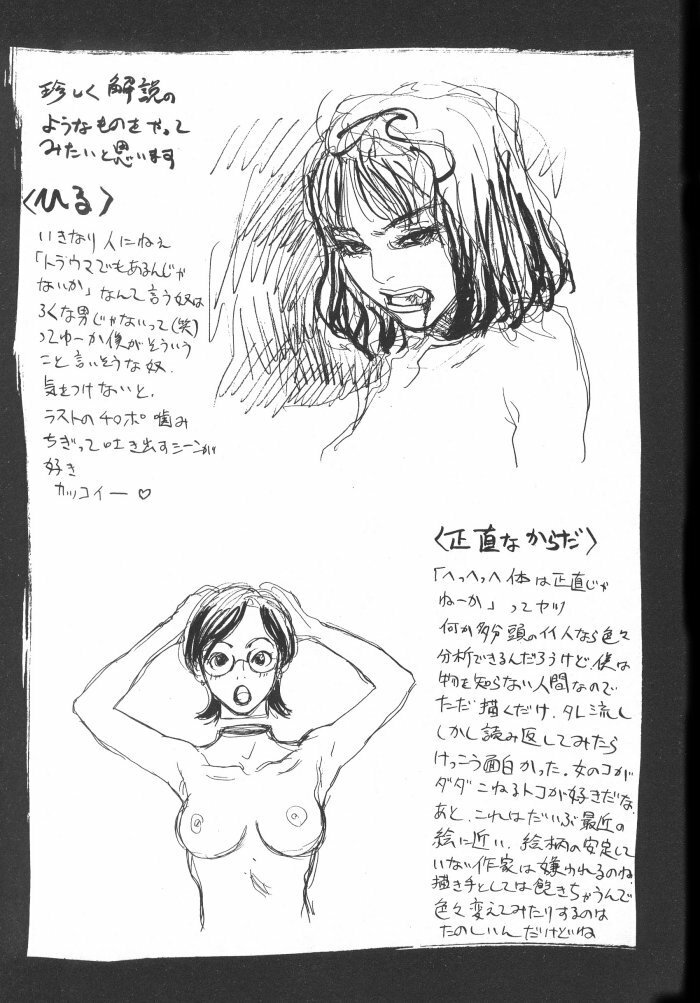 珍しく解説の
ようなものをやって
みたいと思います
〈ひる〉
いきなり人にねぇ
「トラウマでもあるんじゃ
ないか」なんて言う奴は
ろくな男じゃないって(笑)
ってゆーか僕がそういう
こと言いそうな奴.
気をつけないと.
ラストのチ〇ポ噛み
ちぎって吐き出すシーンが
好き
カッコイー♡
〈正直なからだ〉
「へっへっへ体は正直じゃ
ねーか」ってヤツ
何か多分頭のイイ人なら色々
分析できるんだろうけど、僕は
物を知らない人間なので
ただ描くだけ.タレ流し
しかし読み返してみたら
けっこう面白かった.女のコが
ダダこねるトコが好きだな.
あと、これはだいぶ最近の
絵に近い.絵柄の安定して
いない作家は嫌われるのね.
描き手としては飽きちゃうんで
色々変えてみたりするのは
たのしいんだけどね